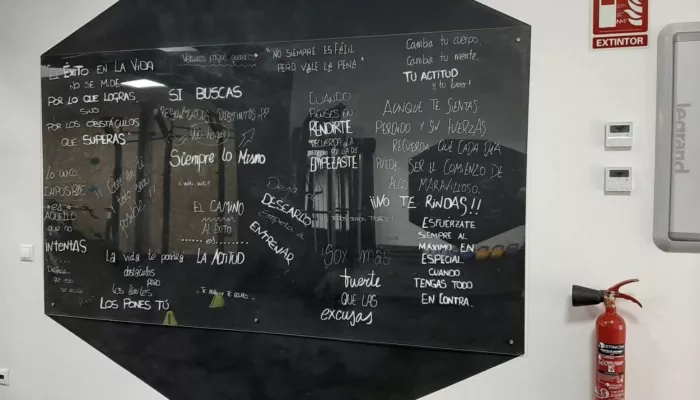 EXTINTOR
EL ÉXITO EN LA VIDA
NO SE MIDE
POR LO QUE LOGRAS
SINO
POR LOS OBSTÁCULOS
QUE SUPERAS
SI BUSCAS
RESULTADOS DISTINTOS
NO HAGAS
SIEMPRE LO MISMO
"NO SIEMPRE ES FÁCIL
PERO VALE LA PENA"
CUANDO
PIENSES EN
RENDIRTE
RECUERDA LA
EMPEZASTE
Cambia tu cuerpo,
Cambia tu mente,
TU ACTITUD
AUNQUE TE SIENTAS
PERDIDO Y SIN FUERZAS
RECUERDA QUE CADA DÍA
PUEDE SER EL COMIENZO DE
ALGO MARAVILLOSO.
¡¡NO TE RINDAS!!
ESFUÉRZATE
SIEMPRE AL
MÁXIMO EN
ESPECIAL
CUANDO
TENGAS TODO
EN CONTRA.
Lo único
IMPOSIBLE
es
AQUELLO
QUE NO
INTENTAS
EL CAMINO
AL ÉXITO
es
LA ACTITUD
Deja de
DESEARLO
Empieza a
ENTRENAR
La vida te pondrá
obstáculos
PERO
los límites
LOS PONES TÚ
Soy más
fuerte
QUE LAS
excusas
legrand